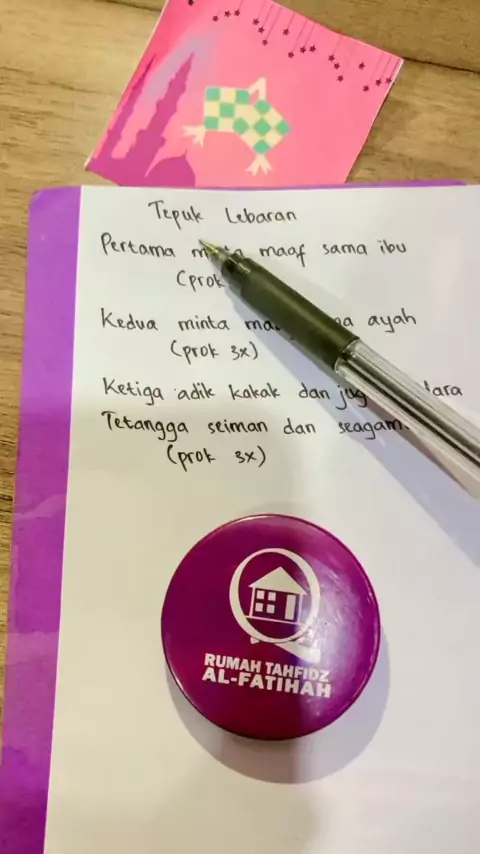 Tepuk Lebaran
Pertama minta maaf sama ibu
(prok
Kedua minta ayah
(prok 3x)
Ketiga adik kakak dan
Tetangga seiman dan
(prok 3x)
RUMAH TAHFIDZ
AL-FATIHAH